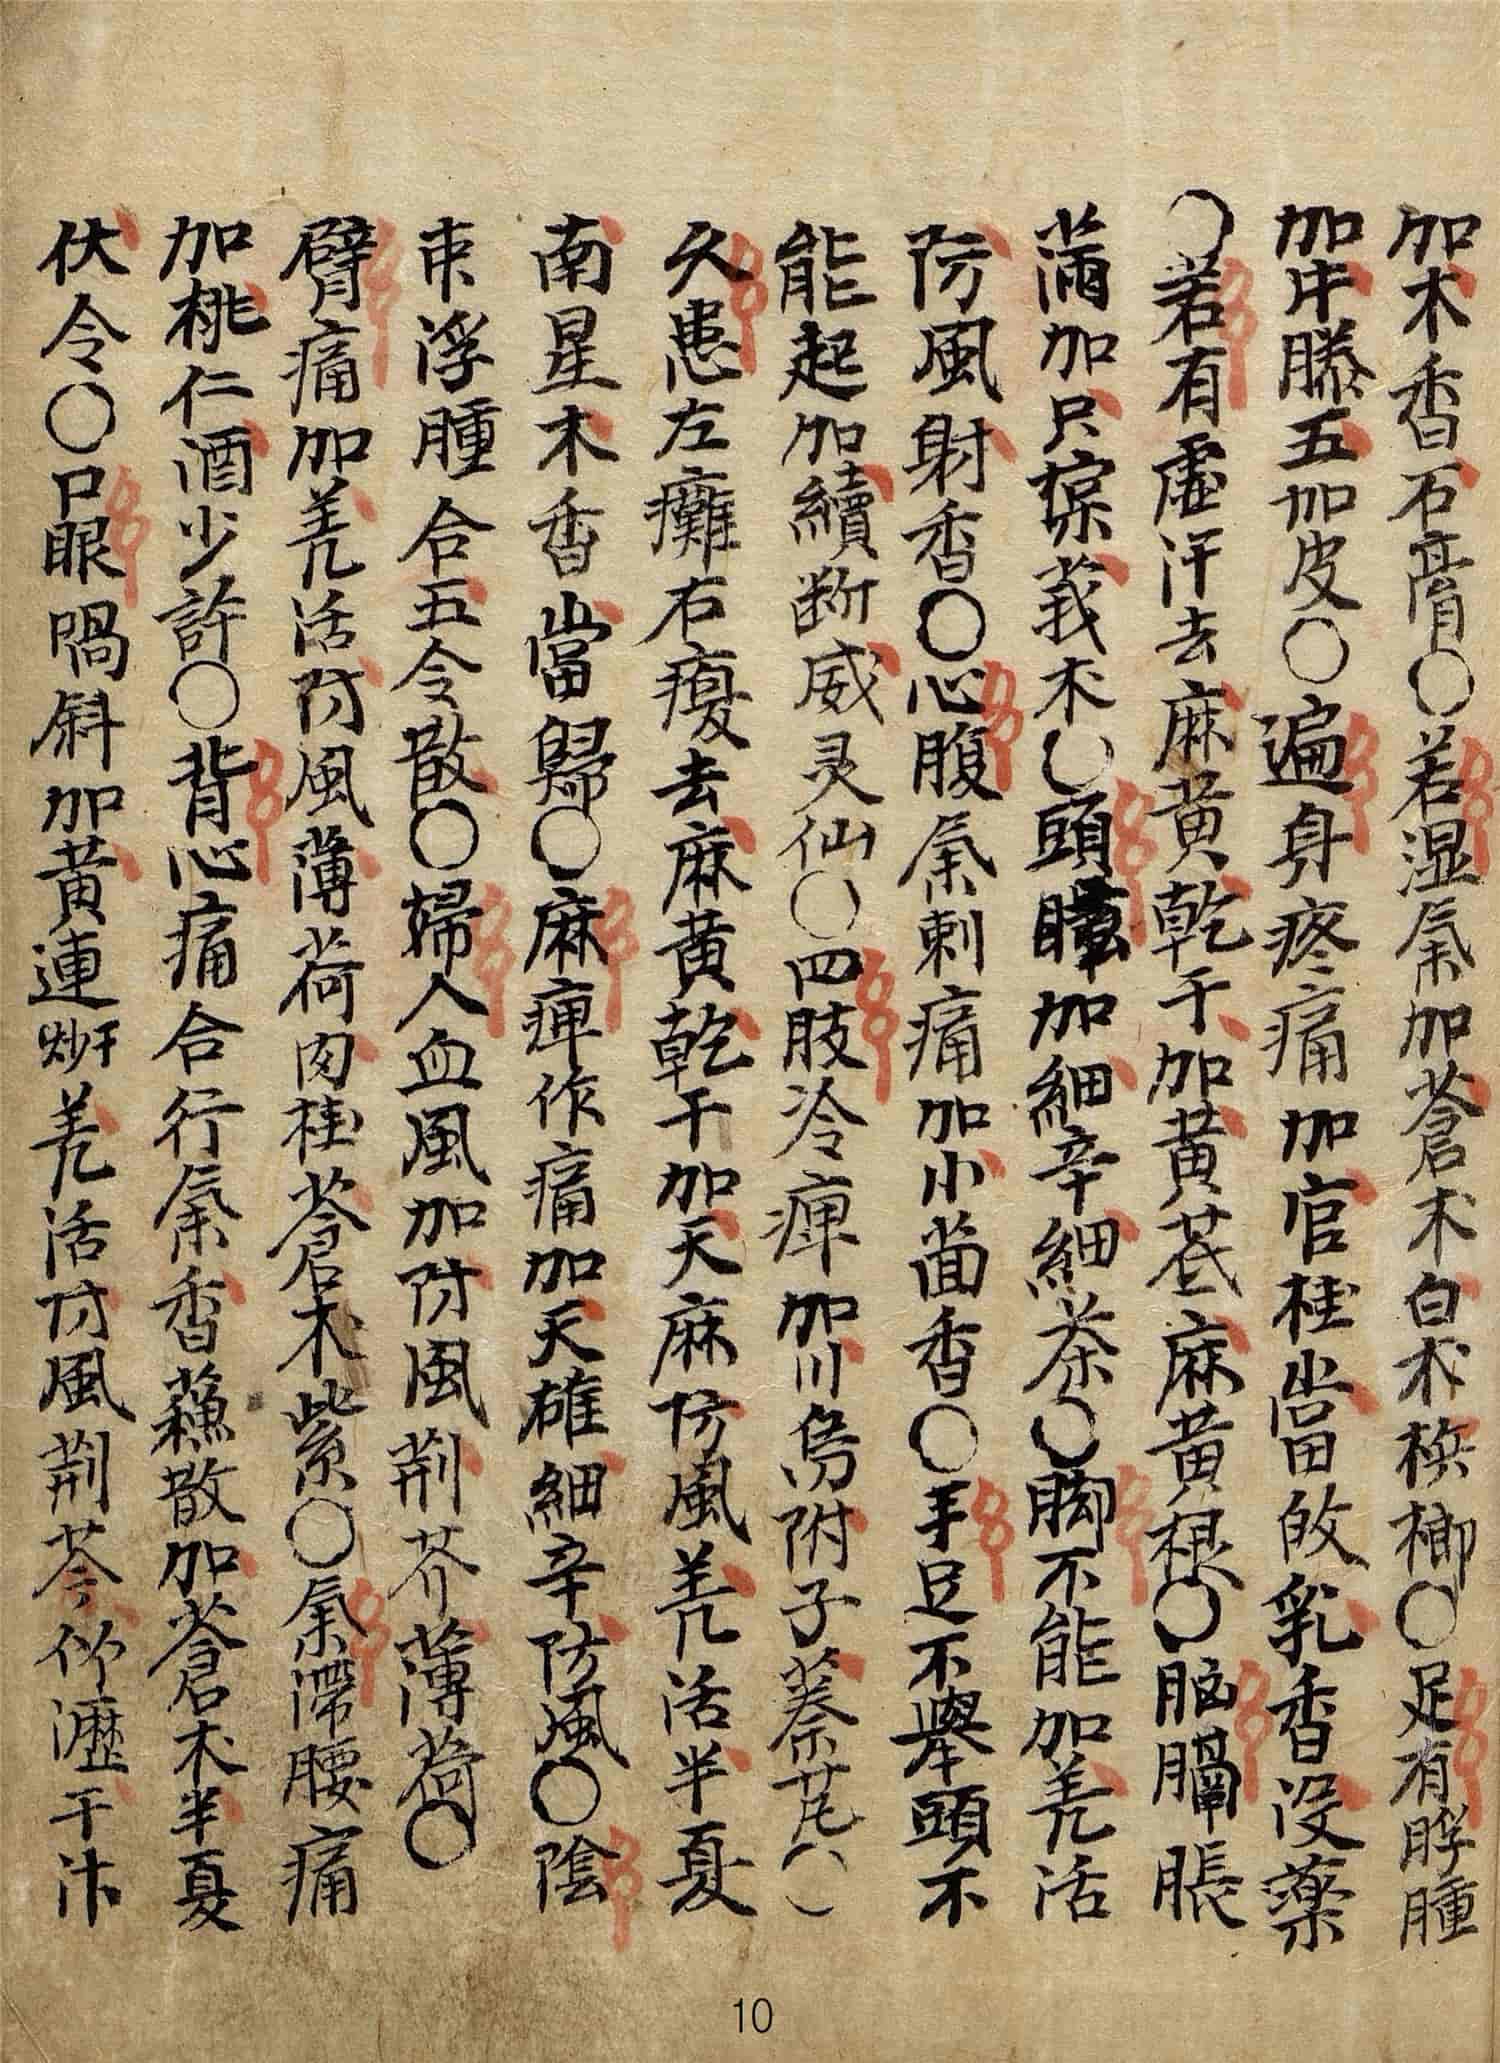 加木香石膏〇若湿氣加蒼朮白朮梹榔〇足有脬腫
加牛膝五加皮〇遍身疼痛加官桂當皈乳香没藥
〇若有虛汗去麻黄乾干加黄芪麻黄根〇脳膈脹
滿加只棠莪朮〇頭加細辛細茶〇脚不能加羌活
防風射香〇心腹氣刺痛加小茴香〇手足不擧頭不
能起加續断威灵仙〇四肢冷痺加川烏附子蓁艽〇
久患左癱右瘓去麻黄乾干加天麻防風羌活半夏
南星木香當歸〇麻痺作痛加天雄細辛防風〇陰
束浮腫合五令散〇婦人血風加防風荊芥薄荷〇
臂痛加羌活防風薄荷肉桂蒼朮紫〇氣滯腰痛
加桃仁酒少許〇背心痛合行氣香蘓散加蒼朮半夏
伏令〇口眼喎斜加黄連炒干羌活防風荊芩竹瀝干汁
10